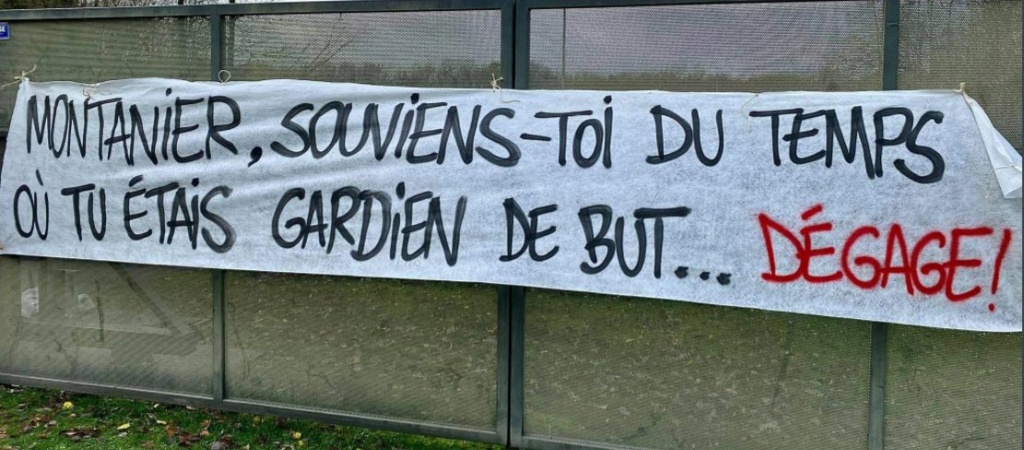 MONTANIER, SOUVIENS-TOI DU TEMPS
OÙ TU ÉTAIS GARDIEN DE BUT... DÉGAGE!